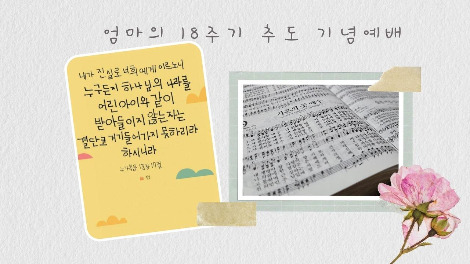 엄마의 18주기 추도 기념예배
내가 진실로 너희에게 이르노니
누구든지 하나님의 나라를
어린 아이와 같이
받아들이지 않는 자는
결단코 거기 들어가지 못하리라
하시니라
누가복음 18장 17절